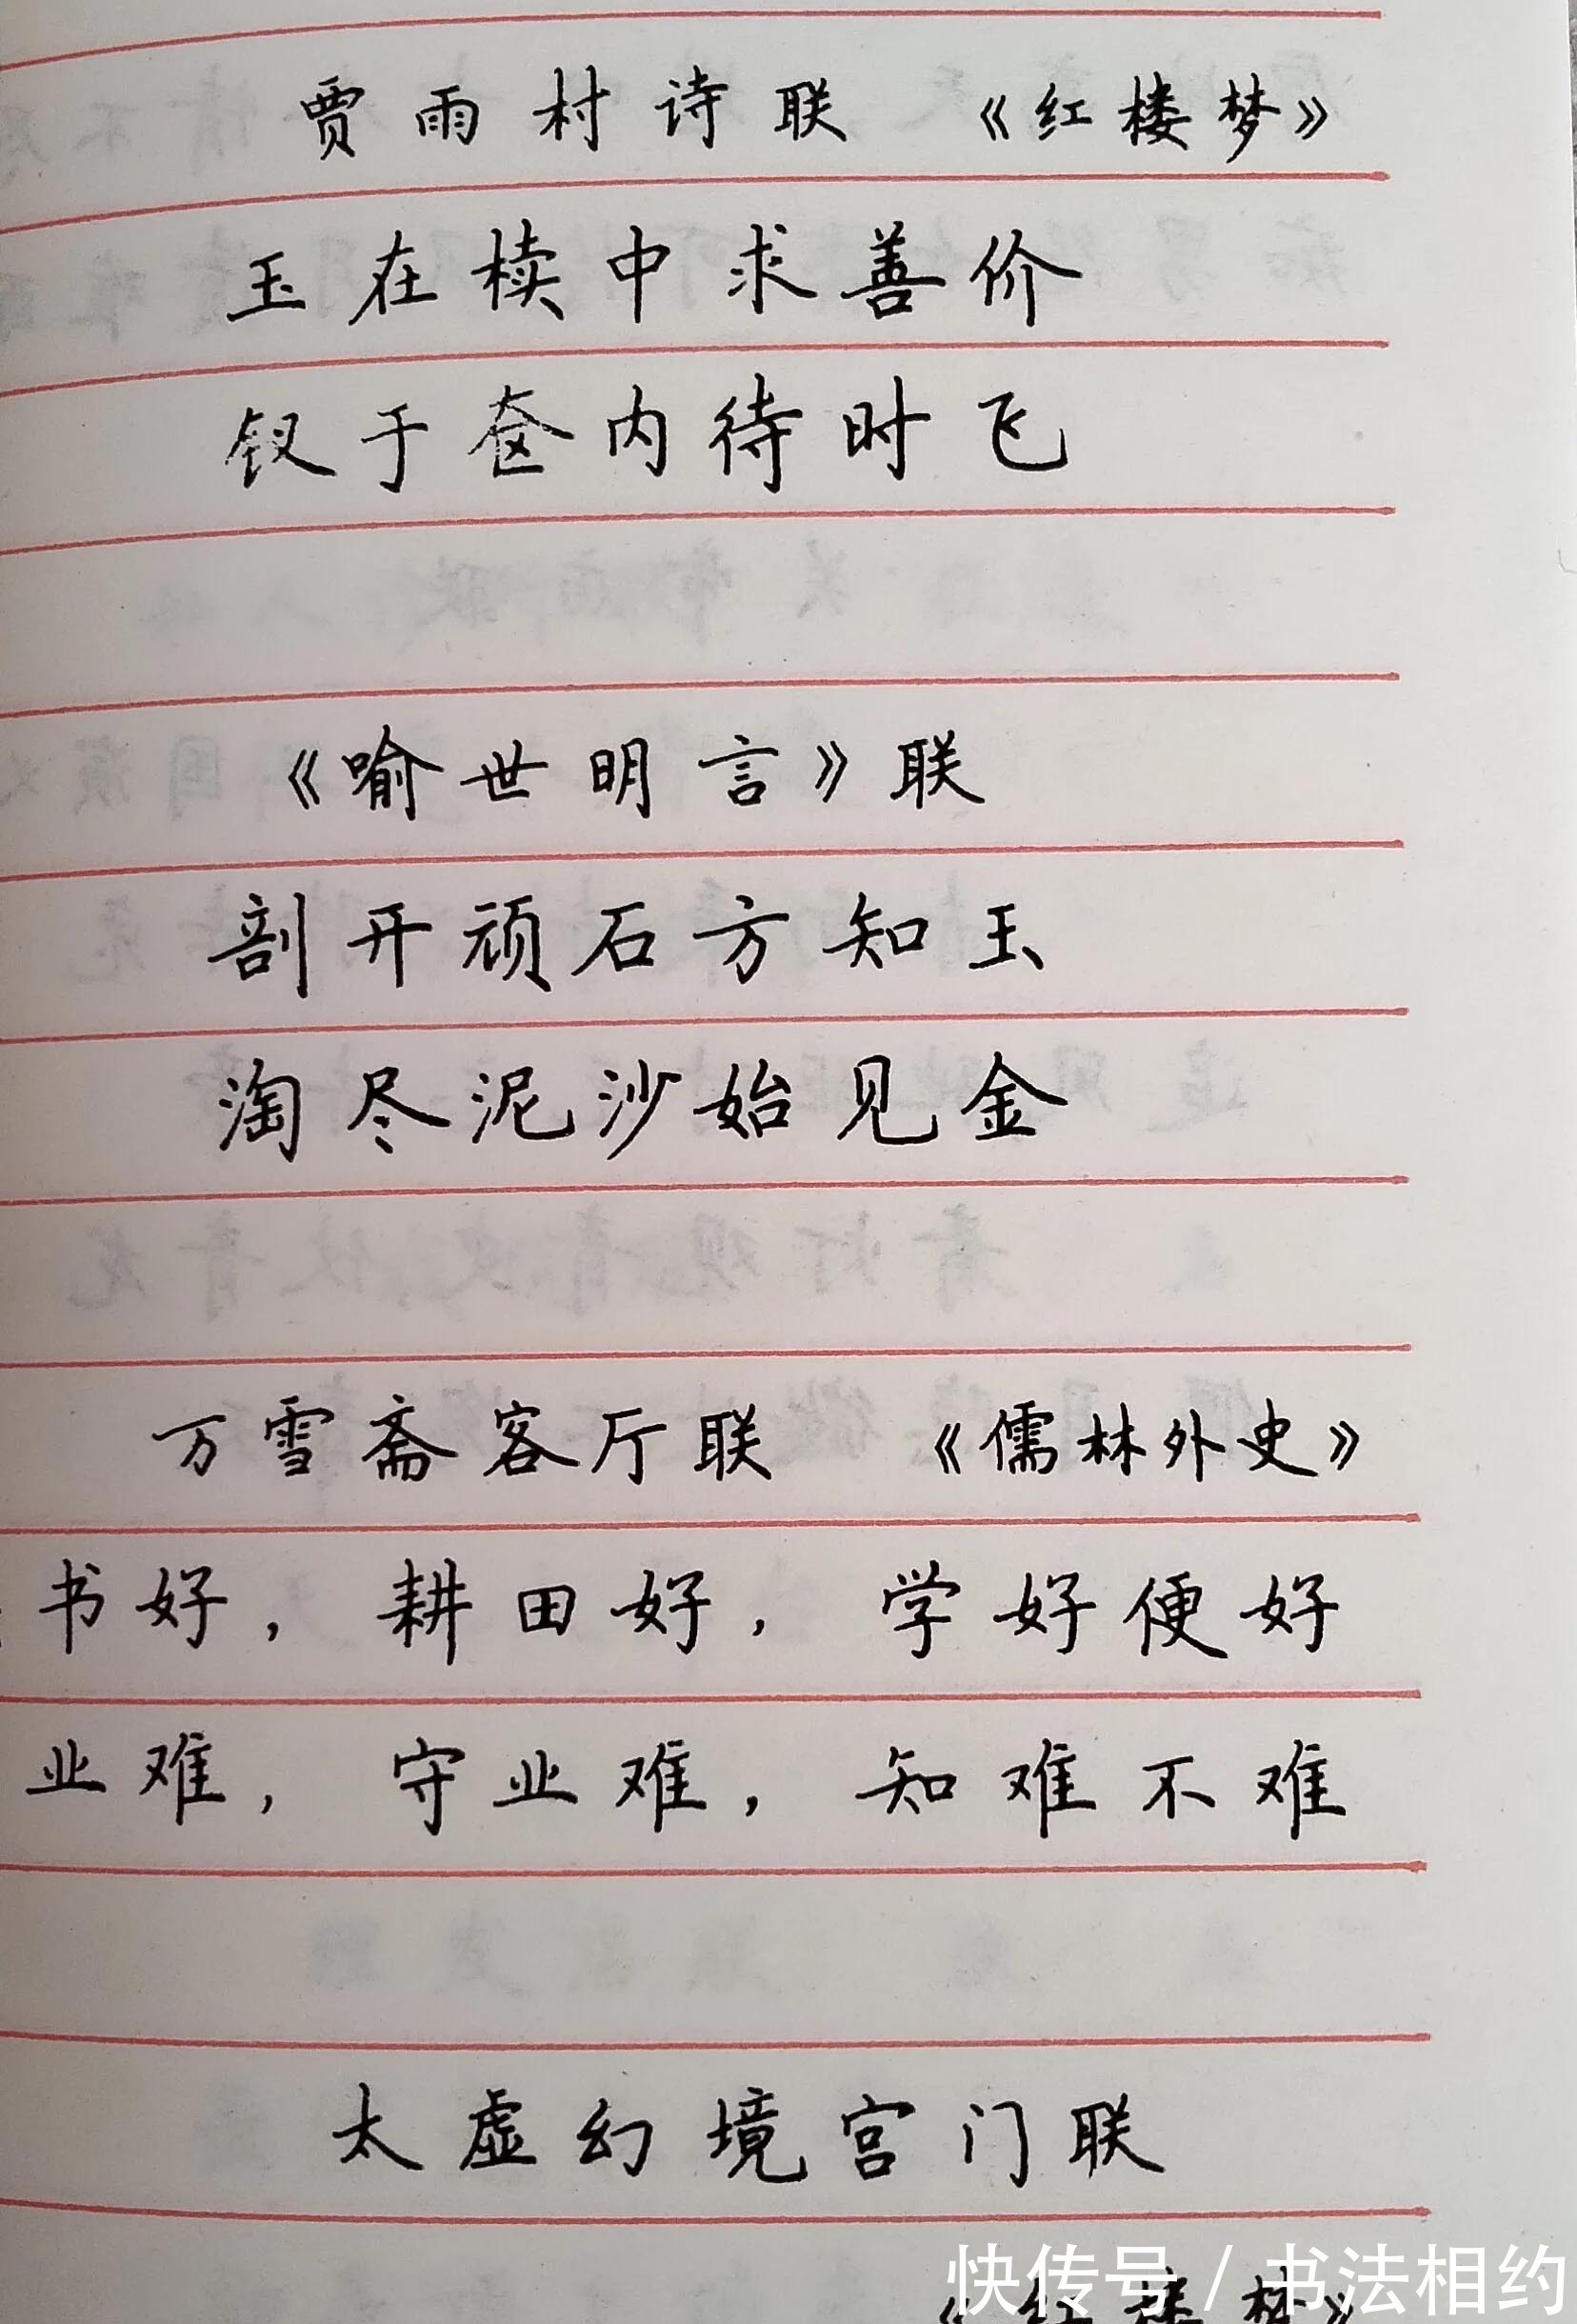 贾雨村诗联 《红楼梦》
玉在椟中求善价
钗于奁内待时飞
《喻世明言》联
剖开顽石方知玉
淘尽泥沙始见金
万雪斋客厅联 《儒林外史》
书好,耕田好,学好便好
业难,守业难,知难不难
太虚幻境宫门联
《红楼梦》
快传号/书法相约